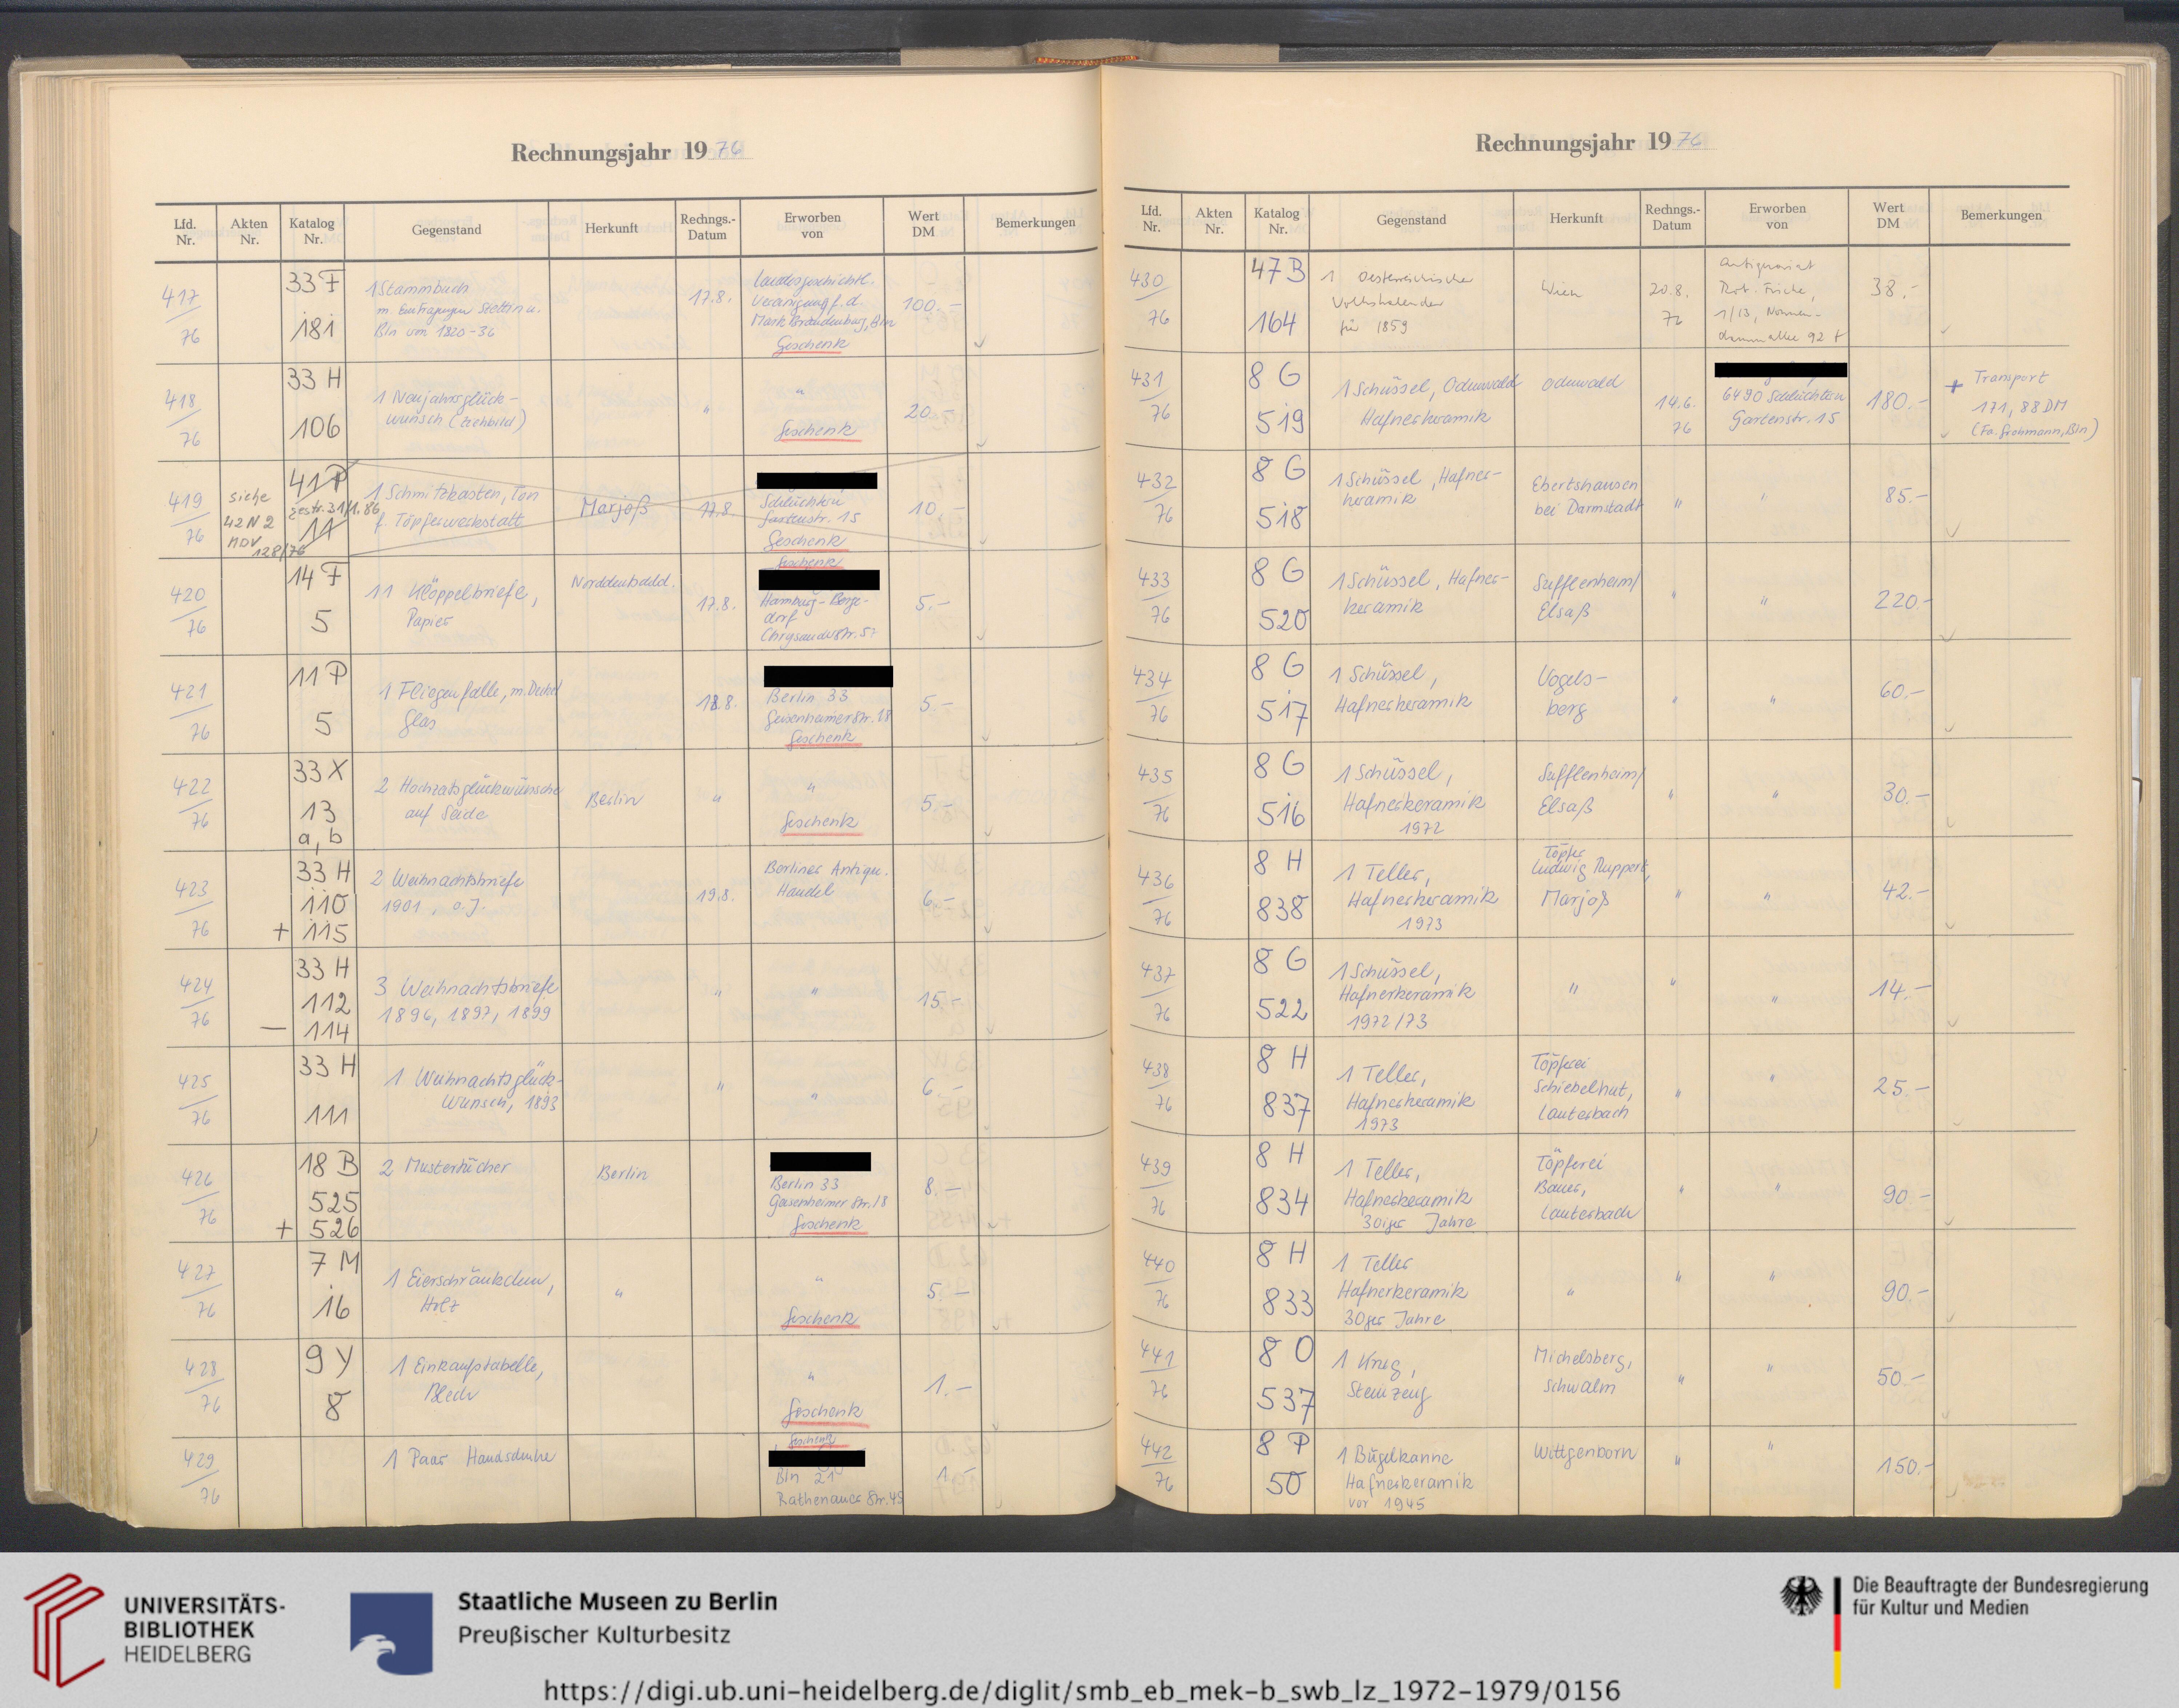 Rechnungsjahr 1976
Lfd. Nr.
Akten Nr.
Katalog Nr.
Gegenstand
Herkunft
Rechngs.-Datum
Erworben von
Wert DM
Bemerkungen
417/76
33 F
181
1 Stammbuch
m. Eintragungen Stettin u.
Bln von 1820-36
17.8.
Landesgeschichtl.
Vereinigung f. d.
Mark Brandenburg, Bln
Geschenk
100.-
418/76
33 H
106
1 Neujahrsglück-
wunsch (Ziehbild)
"
"
Geschenk
20.-
419/76
siehe
42 N 2
NDV
128/76
41 P
gestr. 31/1.86
11
1 Schmitzkasten, Ton
f. Töpferwerkstatt
Marjoß
17.8.
Schlüchtern
Gartenstr. 15
Geschenk
10.-
420/76
14 F
5
11 Klöppelbriefe,
Papier
Norddeutschld.
17.8.
Geschenk
Hamburg-Berge-
dorf
Chrysanderstr. 57
5.-
421/76
11 P
5
1 Fliegenfalle, m. Deckel
Glas
18.8.
Berlin 33
Geisenheimer Str. 18
Geschenk
5.-
422/76
33 X
13
a, b
2 Hochzeitsglückwünsche
auf Seide
Berlin
"
"
Geschenk
5.-
423/76
33 H
110
+ 115
2 Weihnachtsbriefe
1901, o.J.
19.8.
Berliner Antiqu.
Handel
6.-
424/76
33 H
112
- 114
3 Weihnachtsbriefe
1896, 1897, 1899
"
"
15.-
425/76
33 H
111
1 Weihnachtsglück-
wunsch, 1893
"
"
6.-
426/76
18 B
525
+ 526
2 Mustertücher
Berlin
Berlin 33
Geisenheimer Str. 18
Geschenk
8.-
427/76
7 M
16
1 Eierschränkchen,
Holz
"
"
Geschenk
5.-
428/76
9 Y
8
1 Einkaufstabelle,
Blech
"
Geschenk
1.-
429/76
1 Paar Handschuhe
Geschenk
Bln 21
Rathenower Str. 49
1.-
Rechnungsjahr 1976
Lfd. Nr.
Akten Nr.
Katalog Nr.
Gegenstand
Herkunft
Rechngs.-Datum
Erworben von
Wert DM
Bemerkungen
430/76
47 B
164
1 Oesterreichische
Volkskalender
für 1859
Wien
20.8.
76
Antiquariat
Rob. Fricke,
1/13, Nonnen-
dammallee 92 f
38.-
431/76
8 G
519
1 Schüssel, Odenwald
Hafnerkeramik
Odenwald
14.6.
76
6490 Schlüchtern
Gartenstr. 15
180.-
+ Transport
171,88 DM
(Fa. Grohmann, Bln)
432/76
8 G
518
1 Schüssel, Hafner-
keramik
Ebertshausen
bei Darmstadt
"
"
85.-
433/76
8 G
520
1 Schüssel, Hafner-
keramik
Sufflenheim/
Elsaß
"
"
220.-
434/76
8 G
517
1 Schüssel,
Hafnerkeramik
Vogels-
berg
"
"
60.-
435/76
8 G
516
1 Schüssel,
Hafnerkeramik
1972
Sufflenheim/
Elsaß
"
"
30.-
436/76
8 H
838
1 Teller,
Hafnerkeramik
1973
Töpfer
Ludwig Ruppert,
Marjoß
"
"
42.-
437/76
8 G
522
1 Schüssel,
Hafnerkeramik
1972/73
"
"
"
14.-
438/76
8 H
837
1 Teller,
Hafnerkeramik
1973
Töpferei
Schiebelhut,
Lauterbach
"
"
25.-
439/76
8 H
834
1 Teller,
Hafnerkeramik
30iger Jahre
Töpferei
Bauer,
Lauterbach
"
"
90.-
440/76
8 H
833
1 Teller
Hafnerkeramik
30ger Jahre
"
"
"
90.-
441/76
8 O
537
1 Krug,
Steinzeug
Michelsberg,
Schwalm
"
"
50.-
442/76
8 P
50
1 Bügelkanne
Hafnerkeramik
vor 1945
Wittgenborn
"
"
150.-
UNIVERSITÄTS-
BIBLIOTHEK
HEIDELBERG
Staatliche Museen zu Berlin
Preußischer Kulturbesitz
Die Beauftragte der Bundesregierung
für Kultur und Medien
https://digi.ub.uni-heidelberg.de/diglit/smb_eb_mek-b_swb_lz_1972-1979/0156